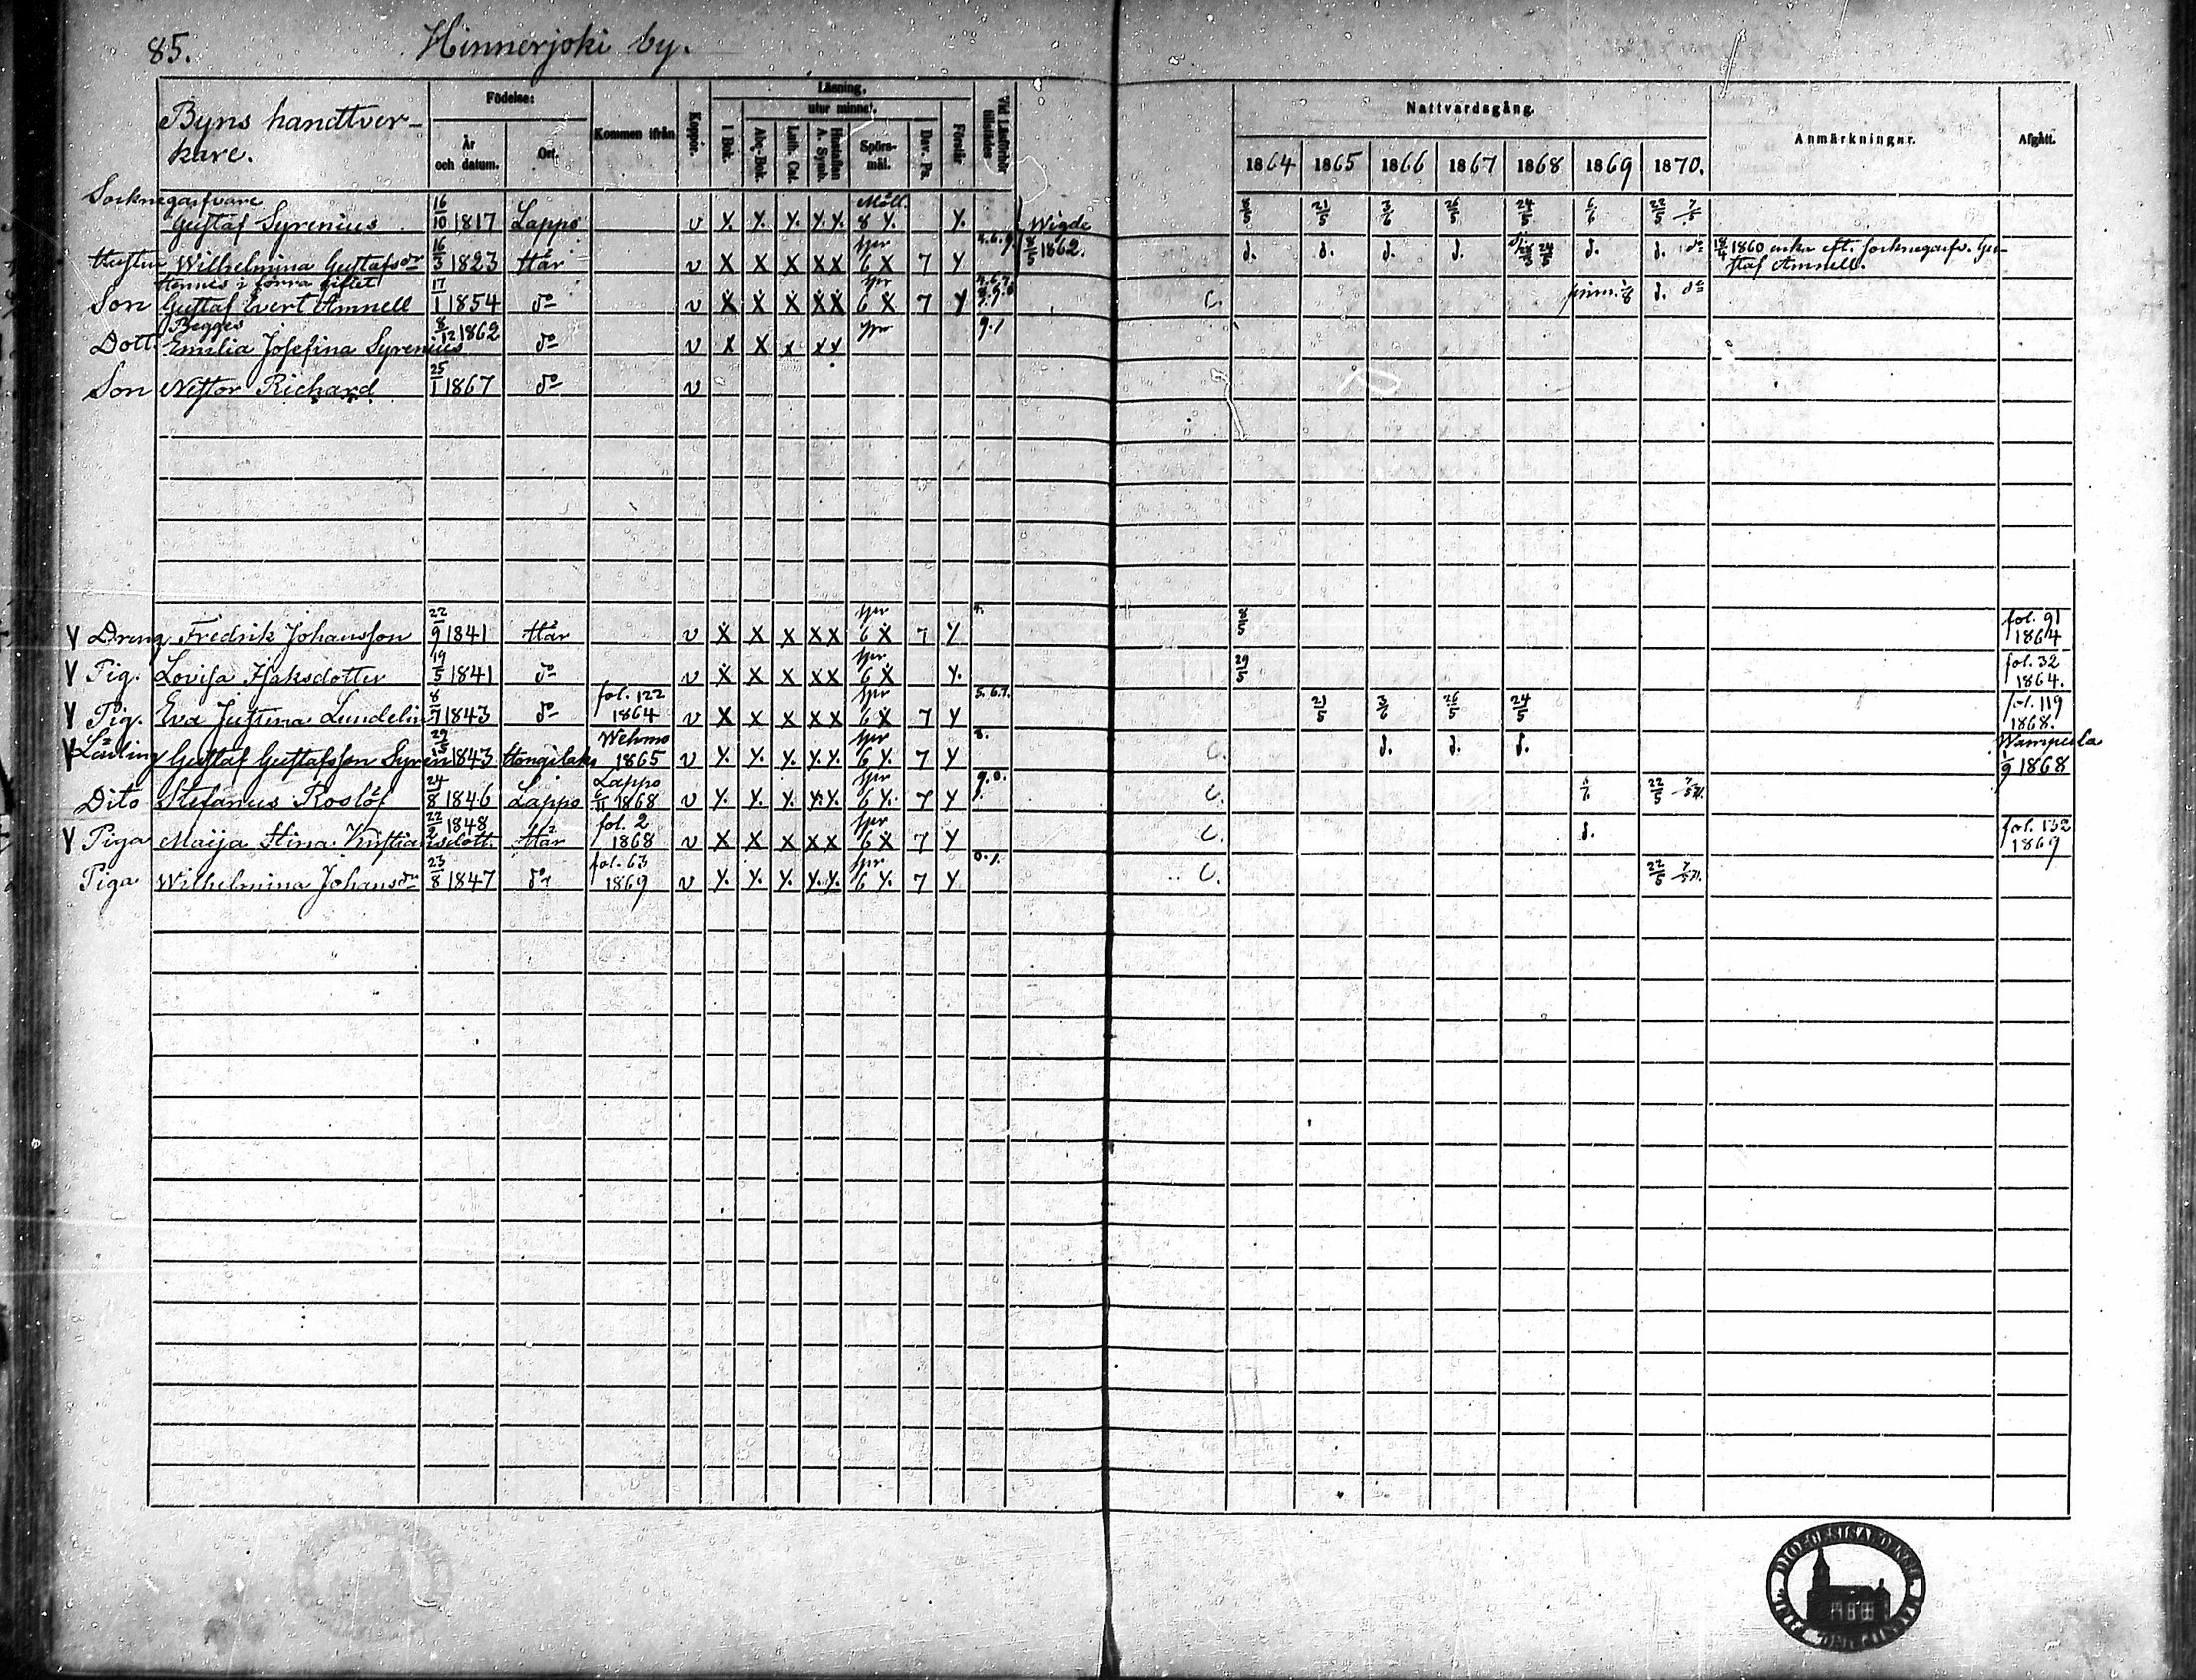 85. Hinnerjoki by.
Byns handtver-
kare.
Födelse:
År och datum.
Ort.
Kommen ifrån
Koppor.
Läsning,
utur minnet.
I Bok.
Abc-Bok.
Luth. Cat.
Hustaflan A. Symb.
Spörs-mål.
Dav. Ps.
Förstår
Vid Läsförhör tillstädes
Nattvardsgång.
1864 1865 1866 1867 1868 1869 1870.
Anmärkningar.
Afgått.
Socknegarfvare
Gustaf Syrenius 16/10 1817 Lappo v Y. Y. Y. Y. Y. Möll. 8 Y. Y. Wigde 8/5 21/5 3/6 26/5 24/5 6/6 22/5
Hustru Wilhelmina Gustafsdr 16/3 1823 Här v X X X X X 6 X 7 Y 1862. d. d. d. d. d. d. 1860 enka eft. socknegarfv. Gu-
staf Amnell.
Hennes i förra giftet
Son Gustaf Evert Amnell 17/1 1854 do v X X X X X 6 X 7 Y C. d. do
Begges
Dott. Emilia Josefina Syrenius 8/12 1862 do v X X X X X
Son Nestor Richard 25/1 1867 do v
V Dreng Fredrik Johansson 22/9 1841 Här v X X X X X 6 X 7 Y 8/5 fol. 91
1864
V Pig. Lovisa Isaksdotter 19/5 1841 do v X X X X X 6 X Y. 29/5 fol. 32
1864.
V Pig. Eva Justina Lundelin 8/7 1843 do fol. 122
1864 v X X X X X 6 X 7 Y 5.6.7. 21/5 3/6 26/5 24/5 fol. 119
1868.
V Lärling Gustaf Gustafsson Syren 1843 Hongilaks Wehmo
1865 v Y. Y. Y. Y. Y. 6 Y. 7 Y C. d. d. d. Wampula
1/9 1868
Dito Stefanus Roslöf 24/8 1846 Lappo Lappo
1868 v Y. Y. Y. Y. Y. 6 Y. 7 Y C. 22/5
V Piga Maija Stina Kristiansdott. 22/2 1848 Här fol. 2
1868 v X X X X X 6 X 7 Y C. d. fol. 132
1869
Piga Wilhelmina Johansdr 23/8 1847 do fol. 63
1869 v Y. Y. Y. Y. Y. 6 Y. 7 Y C. 22/5